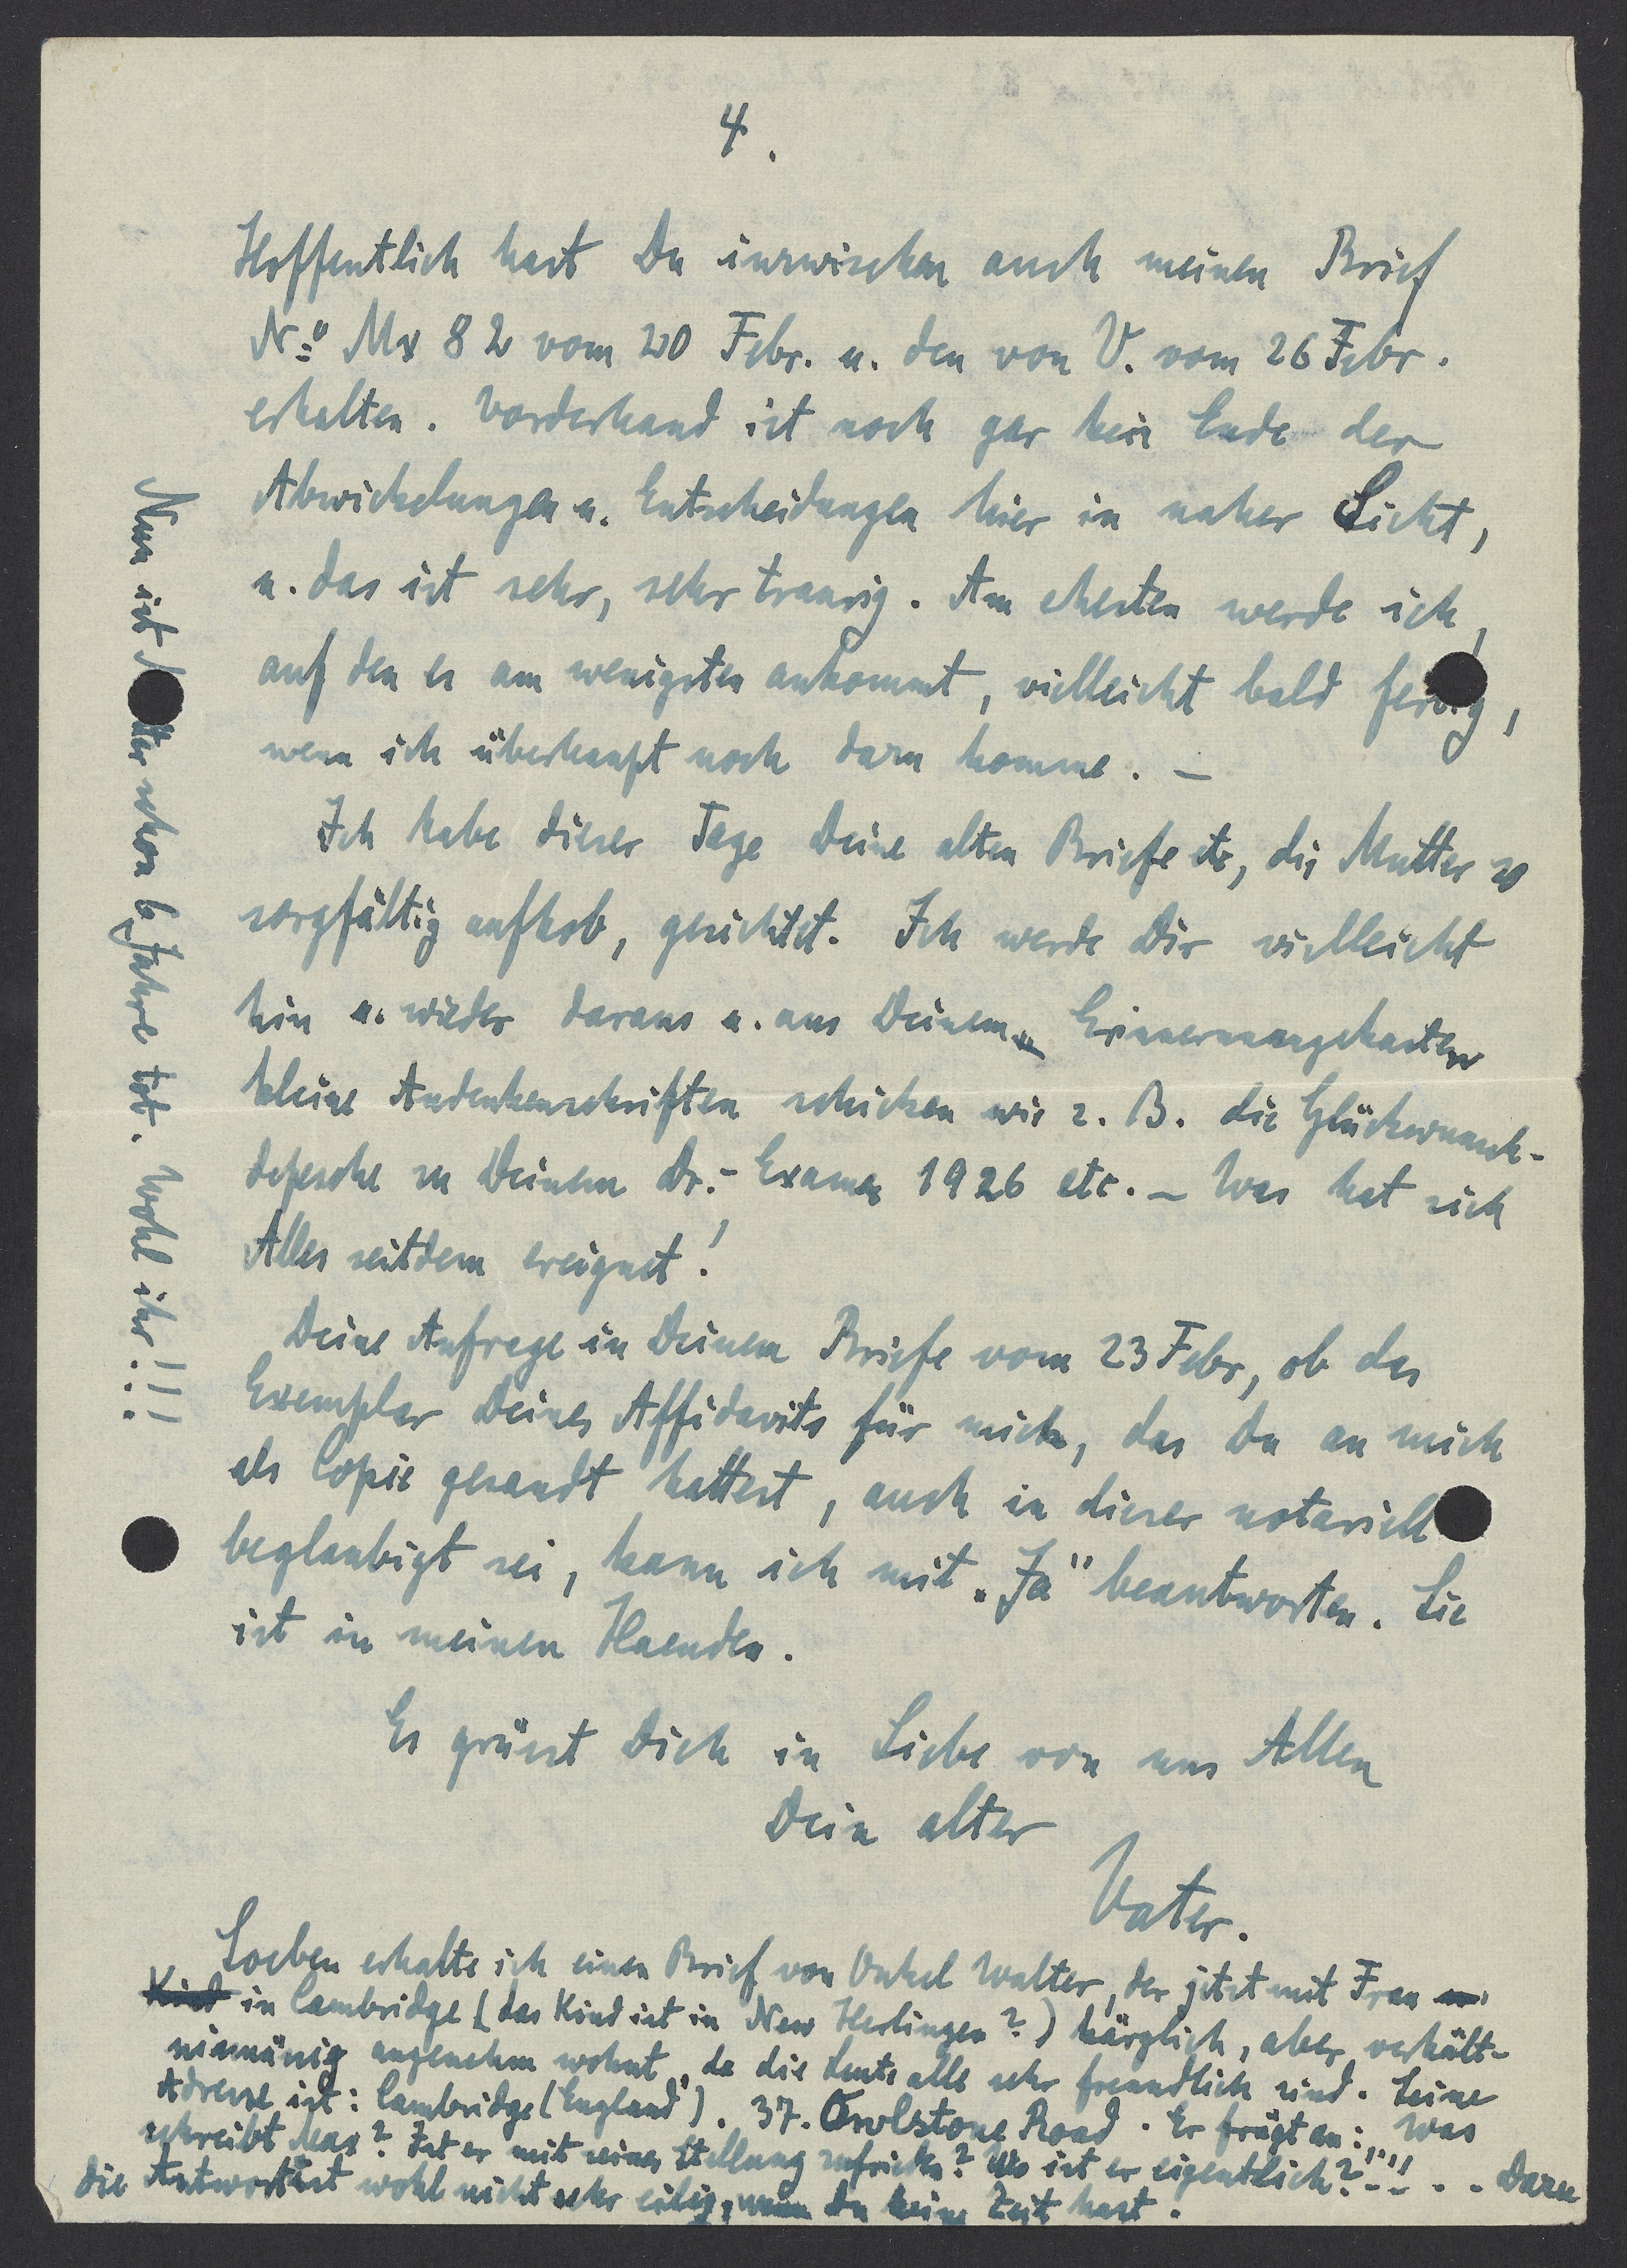 4.
Hoffentlich hast Du inzwischen auch meinen Brief
No Mx 82 vom 20 Febr. u. den von V. vom 26 Febr.
erhalten. Vorderhand ist noch gar kein Ende der
Abwickelungen u. Entscheidungen hier in naher Sicht,
u. das ist sehr, sehr traurig. Am ehesten werde ich,
auf den es am wenigsten ankommt, vielleicht bald fertig,
wenn ich überhaupt noch dazu komme. –
Ich habe dieser Tage Deine alten Briefe etc, die Mutter so
sorgfältig aufhob, gesichtet. Ich werde Dir vielleicht
hin u. wieder daraus u. aus Deinem „Erinnerungskasten
kleine Andenkenschriften schicken wie z. B. die Glückwunsch-
depesche zu Deinem Dr.-Examen 1926 etc. – Was hat sich
Alles seitdem ereignet!
Deine Anfrage in Deinem Briefe vom 23 Febr, ob das
Exemplar Deines Affidavits für mich, das Du an mich
als Copie gesandt hattest, auch in dieser notariell
beglaubigt sei, kann ich mit „Ja" beantworten. Sie
ist in meinen Haenden.
Es grüsst Dich in Liebe von uns Allen
Dein alter
Vater.
Soeben erhalte ich einen Brief von Onkel Walter, der jetzt mit Frau u.
Kind in Cambridge (das Kind ist in New Herlingen?) kärglich, aber verhält-
nismässig angenehm wohnt, da die Leute alle sehr freundlich sind. Seine
Adresse ist: Cambridge (England). 37. Owlstone Road. Er frägt an: „Was
schreibt Max? Ist er mit seiner Stellung zufrieden? Wo ist er eigentlich?"!! - - Dazu
die Antwort ist wohl nicht sehr eilig, wenn Du keine Zeit hast.
Nun ist Mutter schon 6 Jahre tot. Wohl ihr!!!